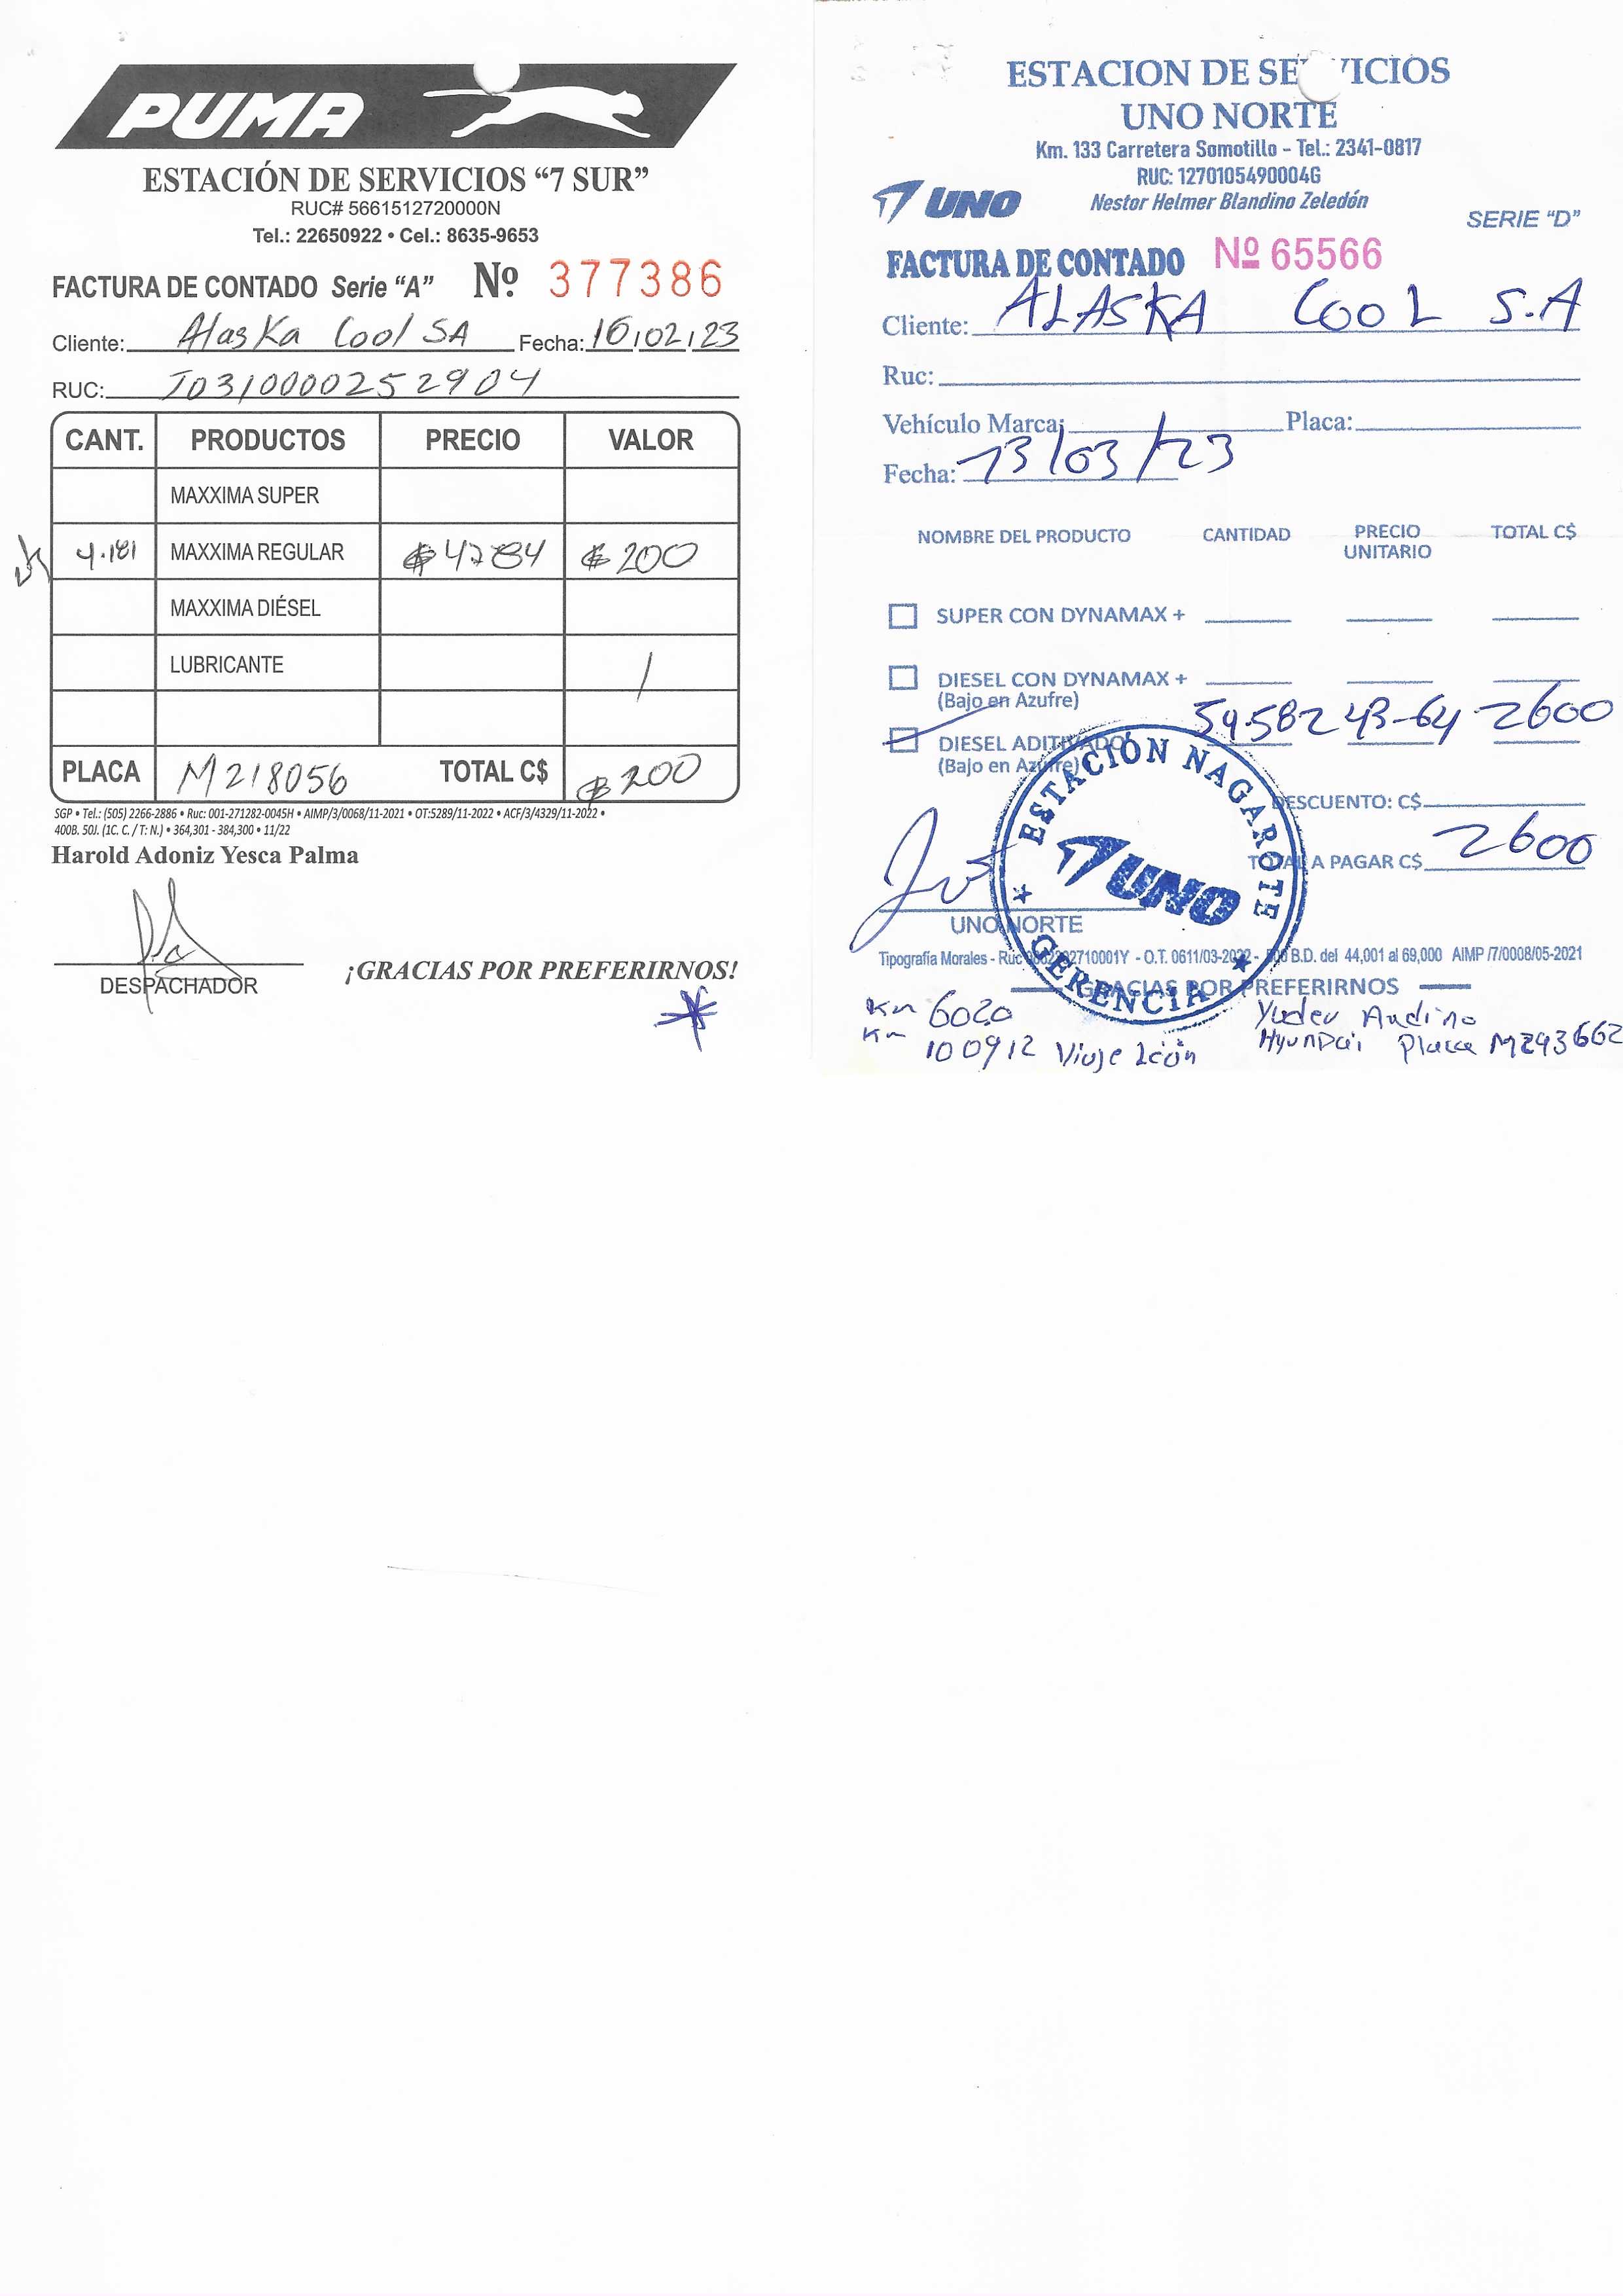 PUMA
ESTACIÓN DE SERVICIOS “7 SUR”
RUC# 5661512720000N
Tel.: 22650922 • Cel.: 8635-9653
FACTURA DE CONTADO Serie “A” Nº 377386
Cliente: Alaska Cool SA Fecha: 16/02/23
RUC: J0310000252904
CANT. PRODUCTOS PRECIO VALOR
MAXXIMA SUPER
4.181 MAXXIMA REGULAR 4784 200
MAXXIMA DIÉSEL
LUBRICANTE
PLACA M218056 TOTAL C$ 200
SGP • Tel.: (505) 2266-2886 • Ruc: 001-271282-0045H • AIMP/3/0068/11-2021 • OT:5289/11-2022 • ACF/3/4329/11-2022 •
400B. 50J. (1C. C. / T: N.) • 364,301 - 384,300 • 11/22
Harold Adoniz Yesca Palma
DESPACHADOR
¡GRACIAS POR PREFERIRNOS!
ESTACION DE SE VICIOS
UNO NORTE
Km. 133 Carretera Somotillo - Tel.: 2341-0817
RUC: 1270105490004G
UNO Nestor Helmer Blandino Zeledón
SERIE “D”
FACTURA DE CONTADO Nº 65566
Cliente: ALASKA COOL S.A
Ruc:
Vehículo Marca: Placa:
Fecha: 13/03/23
NOMBRE DEL PRODUCTO CANTIDAD PRECIO UNITARIO TOTAL C$
SUPER CON DYNAMAX +
DIESEL CON DYNAMAX +
(Bajo en Azufre)
DIESEL ADITIVADO 59.582 43-64 2600
(Bajo en Azufre)
DESCUENTO: C$
TOTAL A PAGAR C$ 2600
ESTACIÓN NAGAROTE
UNO
GERENCIA
UNO NORTE
Tipografía Morales - Ruc 2710001Y - O.T. 0611/03-2022 - B.D. del 44,001 al 69,000 AIMP /7/0008/05-2021
GRACIAS POR PREFERIRNOS
Km 6020
Km 100912 Viaje León
Yuder Andino
Hyundai Placa M293662